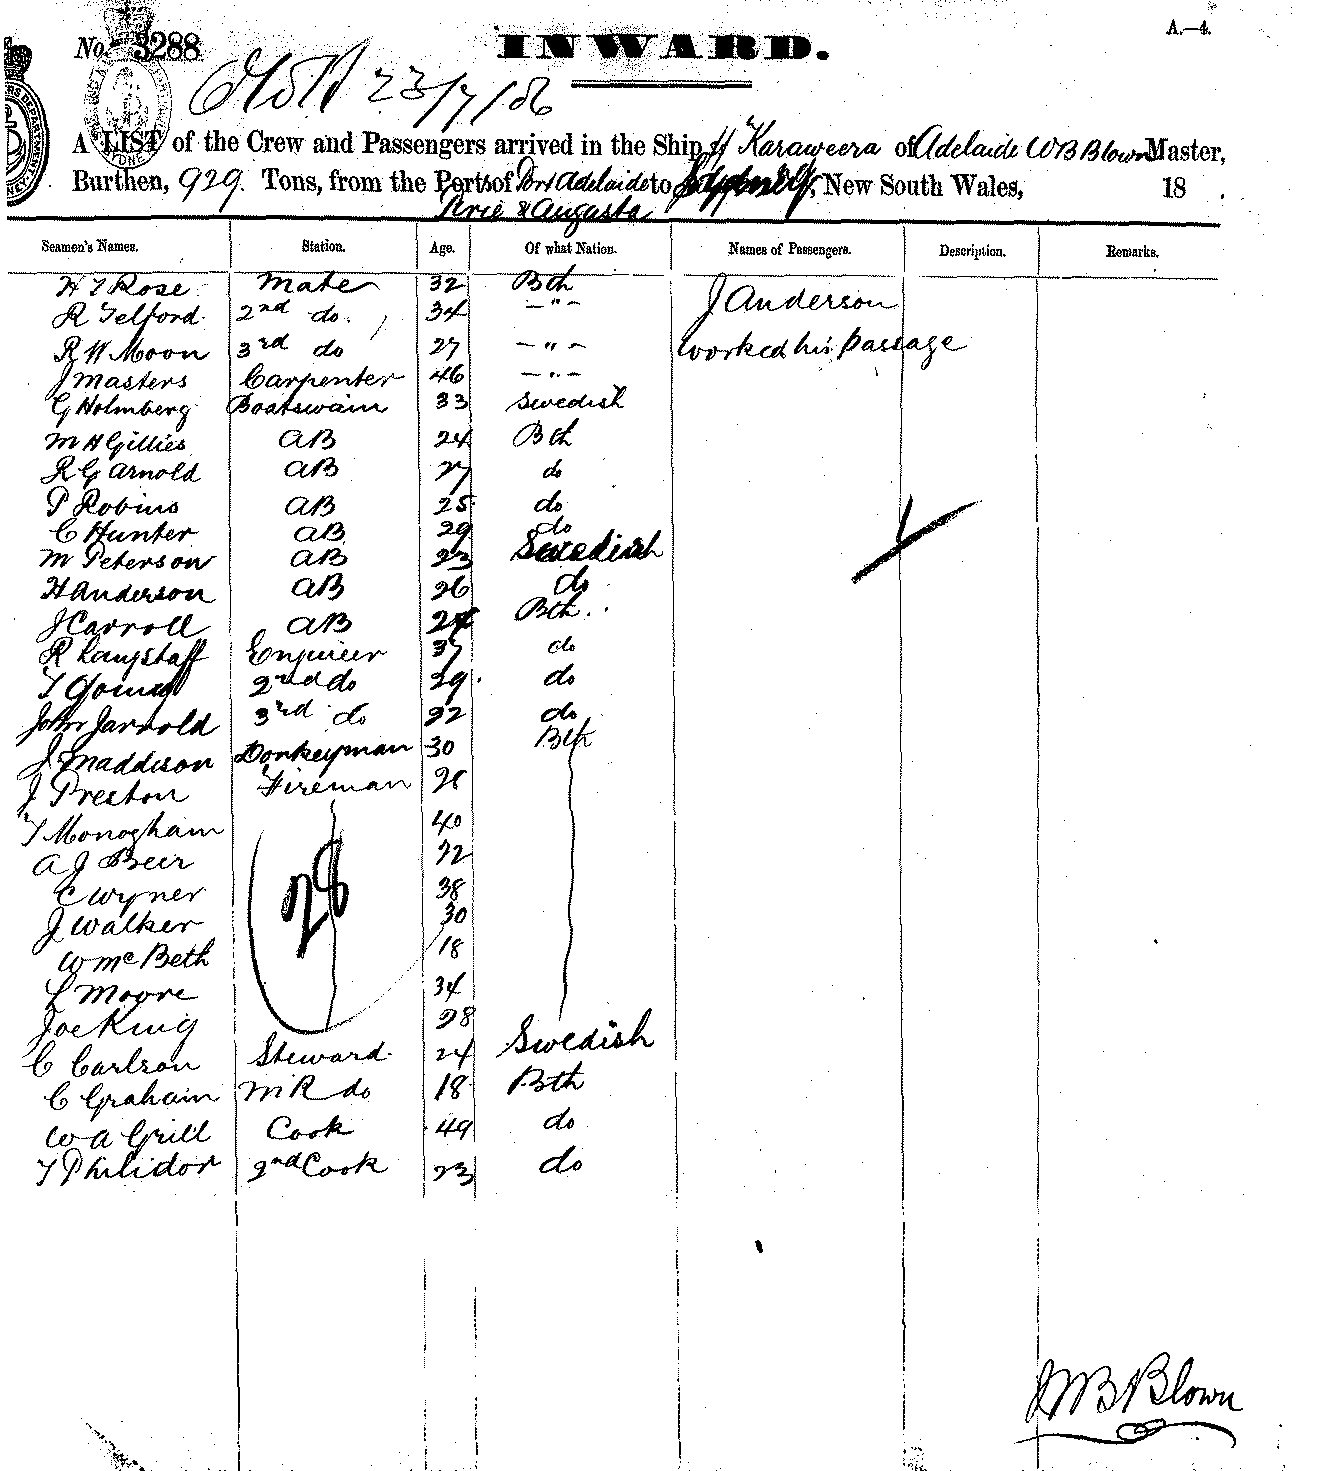 A.—4.
No. 3288
INWARD.
23/7/86
A LIST of the Crew and Passengers arrived in the Ship Karaweera of Adelaide W B Blown Master,
Burthen, 929. Tons, from the Ports of Port Adelaide to New South Wales, 18 .
Pirie & Augusta
Seamen's Names. Station. Age. Of what Nation. Names of Passengers. Description. Remarks.
H T Rose Mate 32 Bth J Anderson
R Telford 2nd do. 34 — " —
R W Moon 3rd do 27 — " — Worked his Passage
J Masters Carpenter 46 — " —
G Holmberg Boatswain 33 Swedish
M H Gillies AB 24 Bth
R G Arnold AB 27 do
P Robins AB 25 do
C Hunter AB 29 do
M Peterson AB 23 Swedish
H Anderson AB 26 do
J Carroll AB 24 Bth
R Langstaff Engineer 37 do
T Young 2nd do 29 do
John Jarrold 3rd do 22 do
J Maddison Donkeyman 30 Bth
J Preston Fireman 28
T Monogham 40
A J Beer 22
C Wyner 38
28
J Walker 30
W McBeth 18
L Moore 34
Joe King 28
C Carlson Steward 24 Swedish
C Graham M R do 18 Bth
W A Grill Cook 49 do
T Philidor 2nd Cook 23 do
W B Blown